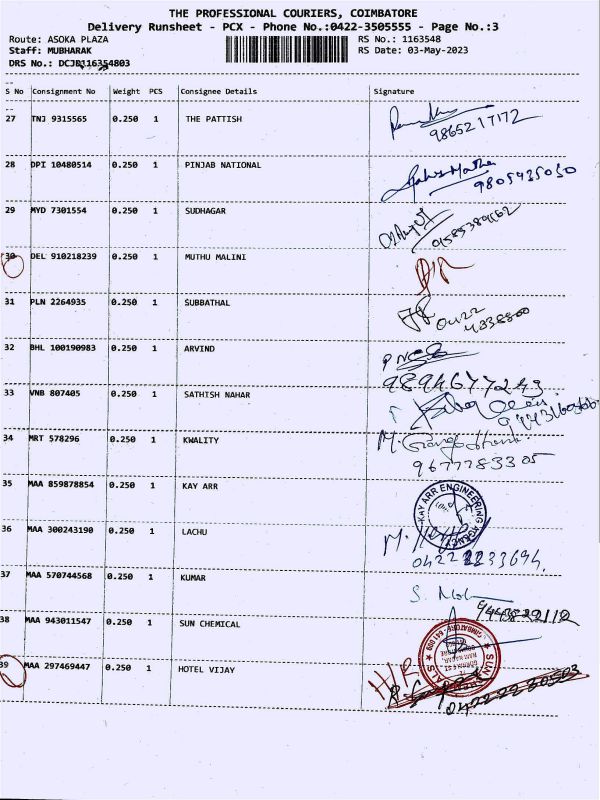 THE PROFESSIONAL COURIERS, COIMBATORE
Delivery Runsheet - PCX - Phone No.:0422-3505555 - Page No.:3
Route: ASOKA PLAZA RS No.: 1163548
Staff: MUBHARAK RS Date: 03-May-2023
DRS No.: DCJB116354803
S No Consignment No Weight PCS Consignee Details Signature
27 TNJ 9315565 0.250 1 THE PATTISH
9865217172
28 DPI 10480514 0.250 1 PINJAB NATIONAL
9805435050
29 MYD 7301554 0.250 1 SUDHAGAR
30 DEL 910218239 0.250 1 MUTHU MALINI
31 PLN 2264935 0.250 1 SUBBATHAL
0422
4338800
32 BHL 100190983 0.250 1 ARVIND
9894677243
33 VNB 807405 0.250 1 SATHISH NAHAR
34 MRT 578296 0.250 1 KWALITY
9677783305
35 MAA 859878854 0.250 1 KAY ARR
KAY ARR ENGINEERING AGENCY
36 MAA 300243190 0.250 1 LACHU
0422 2233694
37 MAA 570744568 0.250 1 KUMAR
S. Moh
38 MAA 943011547 0.250 1 SUN CHEMICAL
39 MAA 297469447 0.250 1 HOTEL VIJAY
H/R